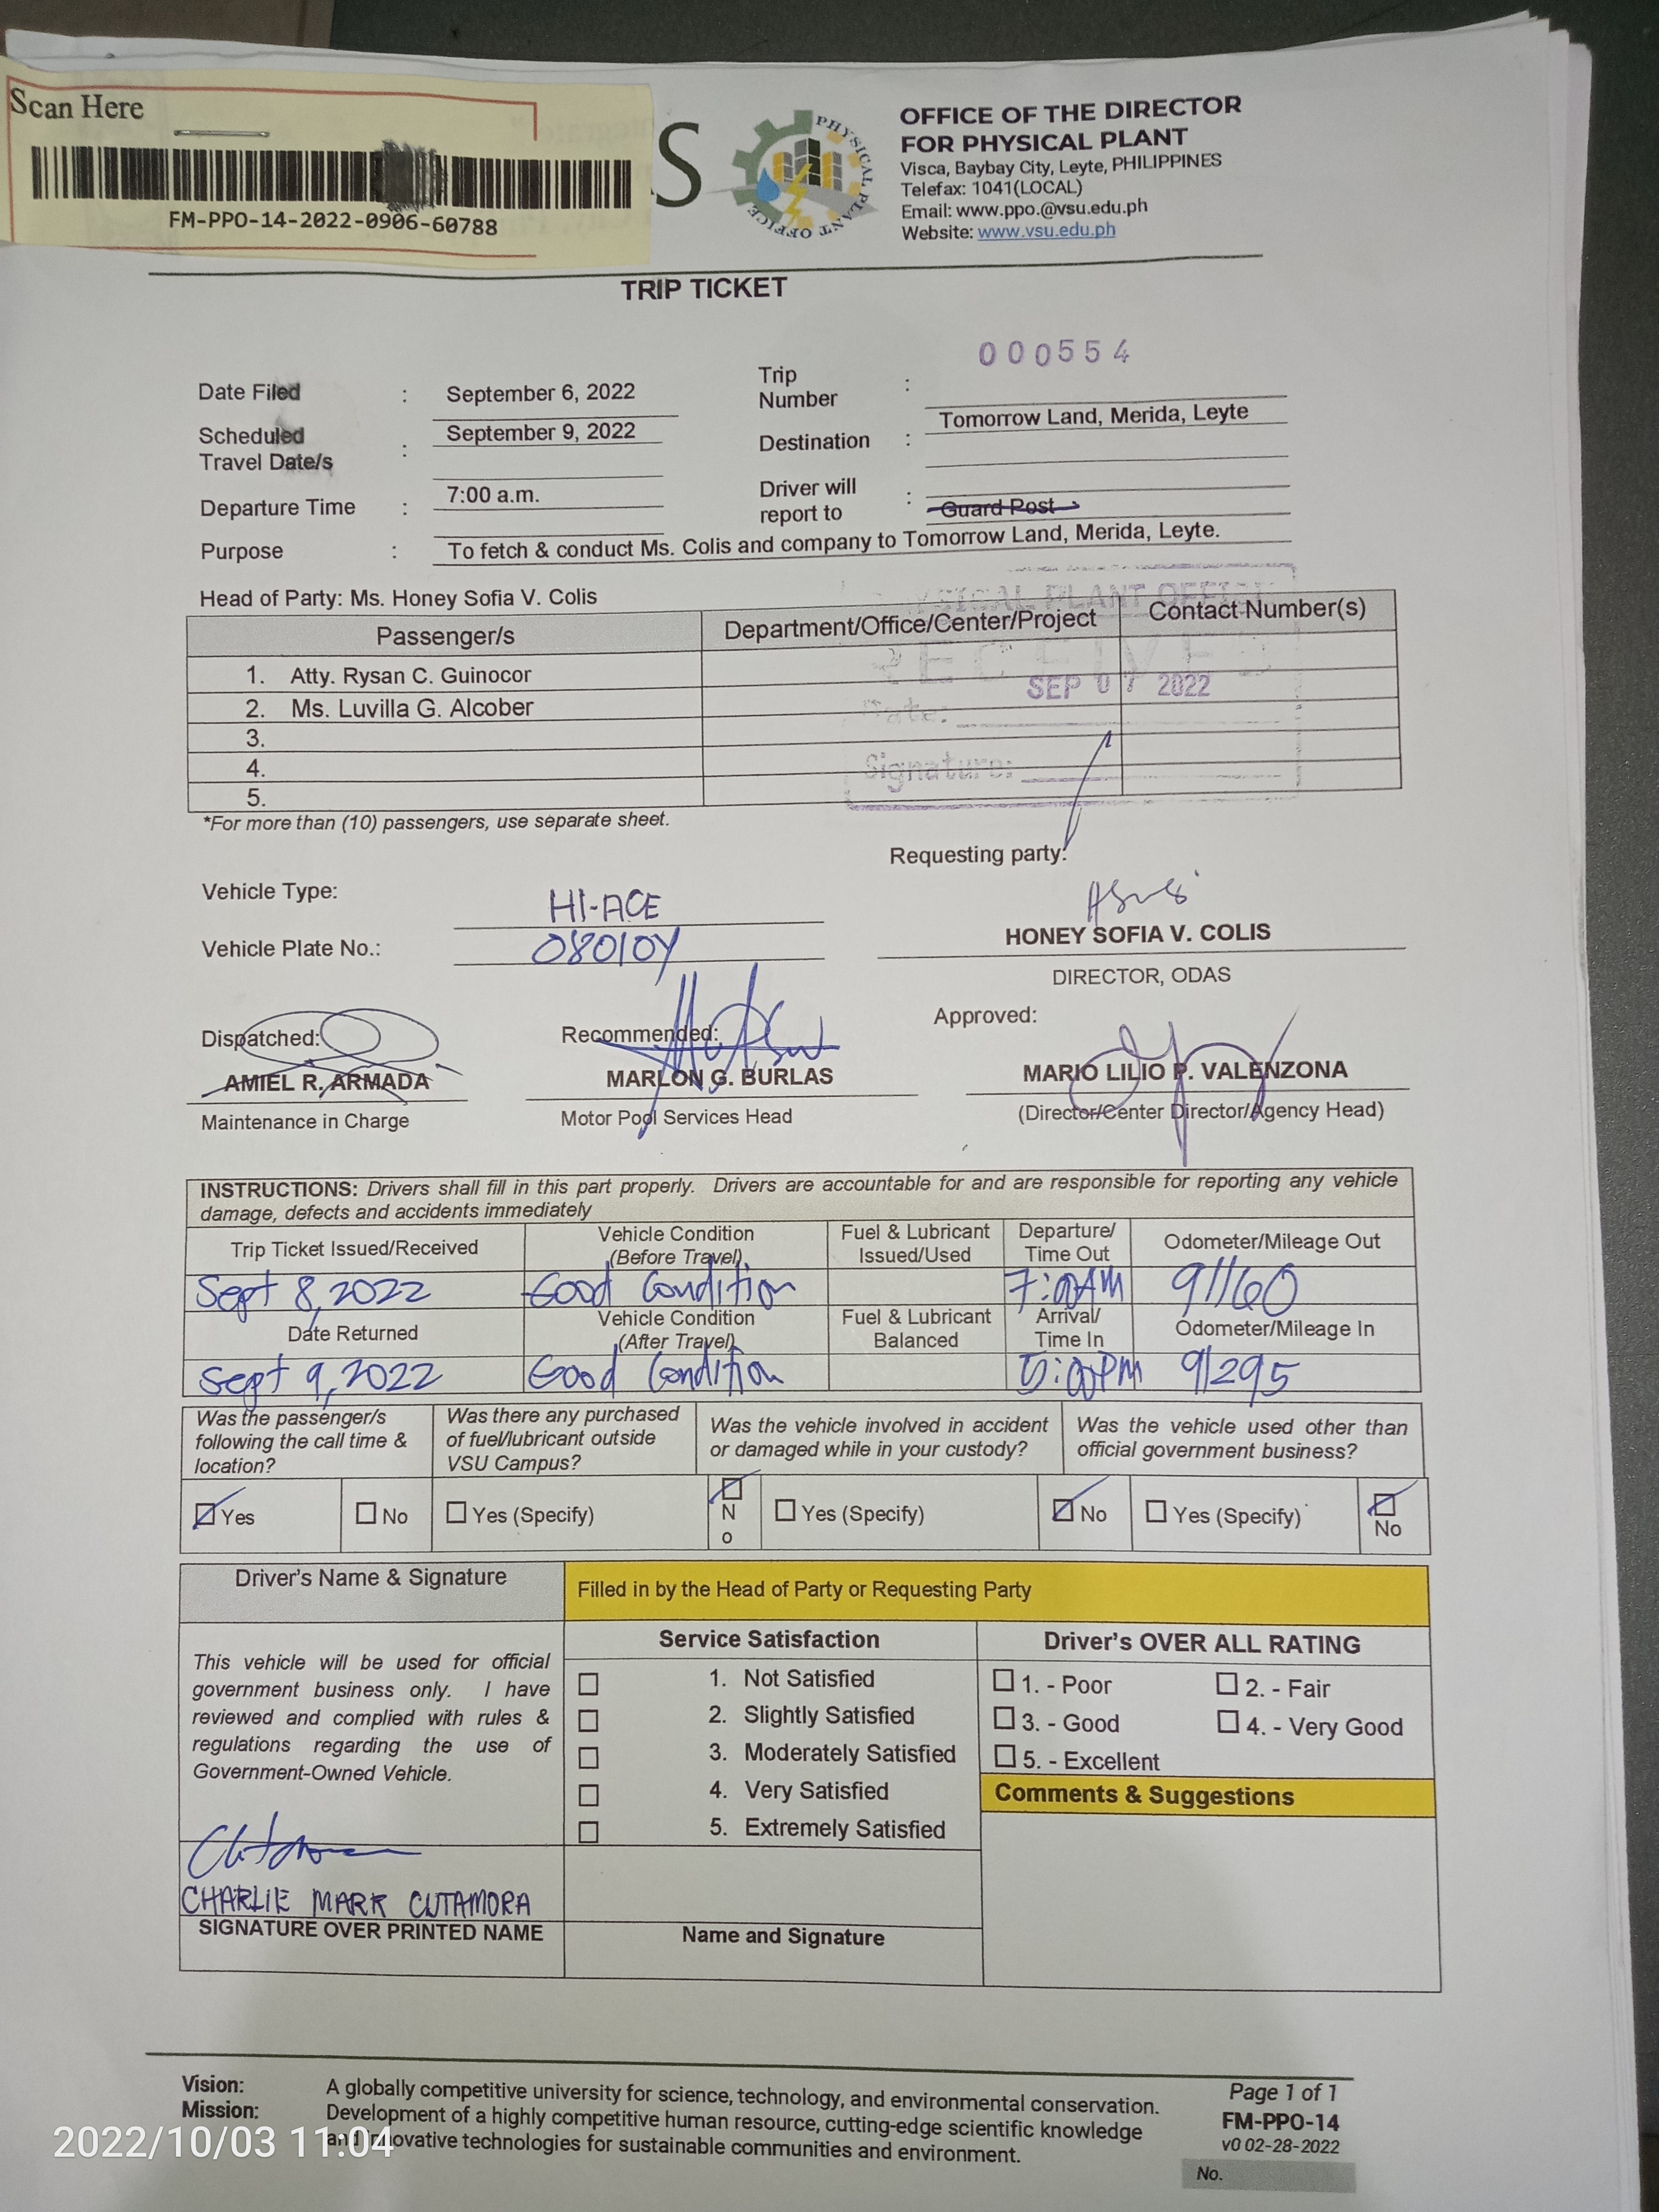 Scan Here
FM-PPO-14-2022-0906-60788
S
PHYSICAL PLANT OFFICE
OFFICE OF THE DIRECTOR
FOR PHYSICAL PLANT
Visca, Baybay City, Leyte, PHILIPPINES
Telefax: 1041(LOCAL)
Email: www.ppo.@vsu.edu.ph
Website: www.vsu.edu.ph
TRIP TICKET
Date Filed : September 6, 2022
Trip Number : 000554
Scheduled Travel Date/s : September 9, 2022
Destination : Tomorrow Land, Merida, Leyte
Departure Time : 7:00 a.m.
Driver will report to : Guard Post
Purpose : To fetch & conduct Ms. Colis and company to Tomorrow Land, Merida, Leyte.
Head of Party: Ms. Honey Sofia V. Colis
Passenger/s Department/Office/Center/Project Contact Number(s)
1. Atty. Rysan C. Guinocor
2. Ms. Luvilla G. Alcober
3.
4.
5.
PHYSICAL PLANT OFFICE
RECEIVED
Date: SEP 07 2022
Signature:
*For more than (10) passengers, use separate sheet.
Requesting party:
Vehicle Type: HI-ACE
Vehicle Plate No.: 080104
HONEY SOFIA V. COLIS
DIRECTOR, ODAS
Dispatched: Recommended: Approved:
AMIEL R. ARMADA MARLON G. BURLAS MARIO LILIO P. VALENZONA
Maintenance in Charge Motor Pool Services Head (Director/Center Director/Agency Head)
INSTRUCTIONS: Drivers shall fill in this part properly. Drivers are accountable for and are responsible for reporting any vehicle
damage, defects and accidents immediately
Trip Ticket Issued/Received Vehicle Condition (Before Travel) Fuel & Lubricant Issued/Used Departure/ Time Out Odometer/Mileage Out
Sept 8, 2022 Good Condition 7:00AM 91160
Date Returned Vehicle Condition (After Travel) Fuel & Lubricant Balanced Arrival/ Time In Odometer/Mileage In
Sept 9, 2022 Good Condition 5:00PM 91295
Was the passenger/s following the call time & location?
Was there any purchased of fuel/lubricant outside VSU Campus?
Was the vehicle involved in accident or damaged while in your custody?
Was the vehicle used other than official government business?
Yes No Yes (Specify) No Yes (Specify) No Yes (Specify) No
Driver's Name & Signature
Filled in by the Head of Party or Requesting Party
This vehicle will be used for official
government business only. I have
reviewed and complied with rules &
regulations regarding the use of
Government-Owned Vehicle.
CHARLIE MARK CUTAMORA
SIGNATURE OVER PRINTED NAME
Service Satisfaction
1. Not Satisfied
2. Slightly Satisfied
3. Moderately Satisfied
4. Very Satisfied
5. Extremely Satisfied
Name and Signature
Driver's OVER ALL RATING
1. - Poor 2. - Fair
3. - Good 4. - Very Good
5. - Excellent
Comments & Suggestions
Vision: A globally competitive university for science, technology, and environmental conservation.
Mission: Development of a highly competitive human resource, cutting-edge scientific knowledge
and innovative technologies for sustainable communities and environment.
Page 1 of 1
FM-PPO-14
v0 02-28-2022
No.
2022/10/03 11:04